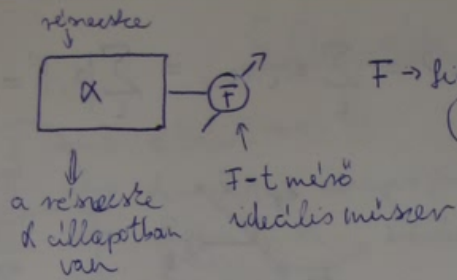 részecske
α
F
F → fi
a részecske
α állapotban
van
F-t mérő
ideális műszer